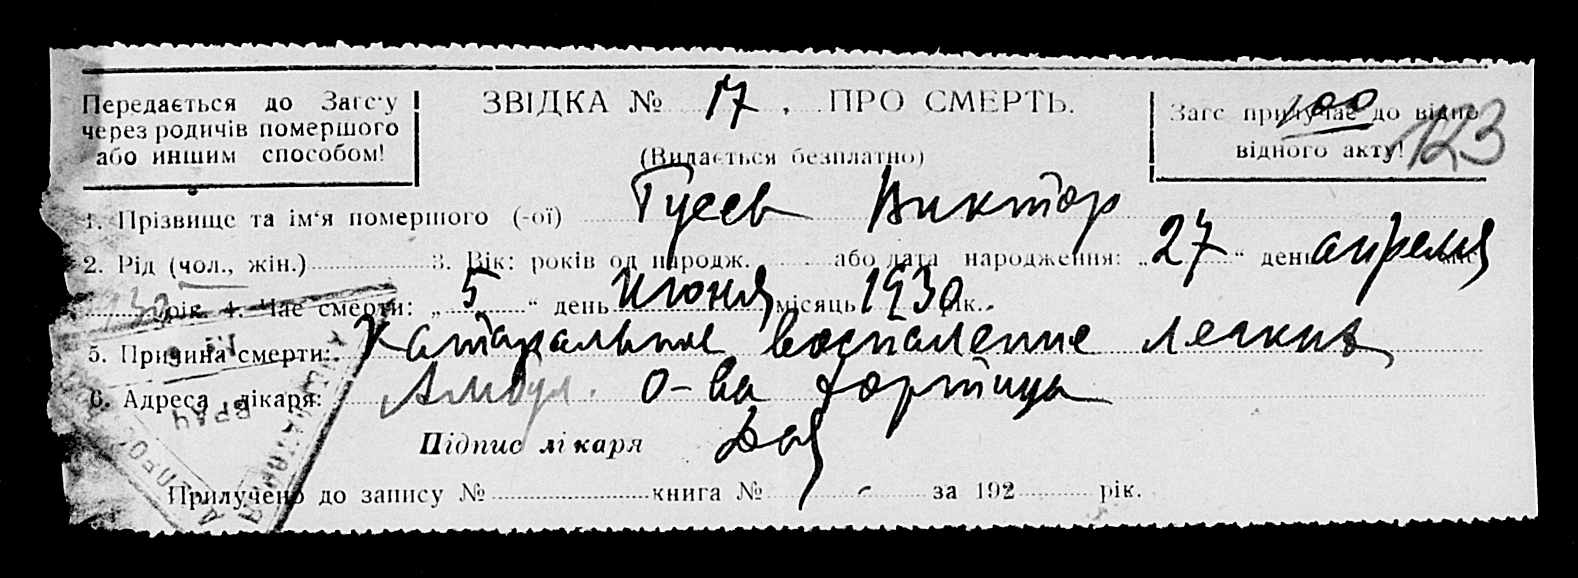 Передається до Загс'у
через родичів помершого
або иншим способом!
ЗВІДКА № 17, ПРО СМЕРТЬ.
(Видається безплатно)
Загс прилучає до відпо
відного акту!
100
123
1. Прізвище та ім'я помершого (-ої) Гусев Виктор
2. Рід (чол., жін.) 3. Вік: років од народж. або дата народження: „27“ день апреля
1930 рік. 4. Час смерти: „5“ день Июня місяць 1930 рік.
5. Причина смерти: Катаральное воспаление легких
6. Адреса лікаря: Амбул. о-ва Хортица
Підпис лікаря
Прилучено до запису № книга № за 192 рік.
ВРАЧ